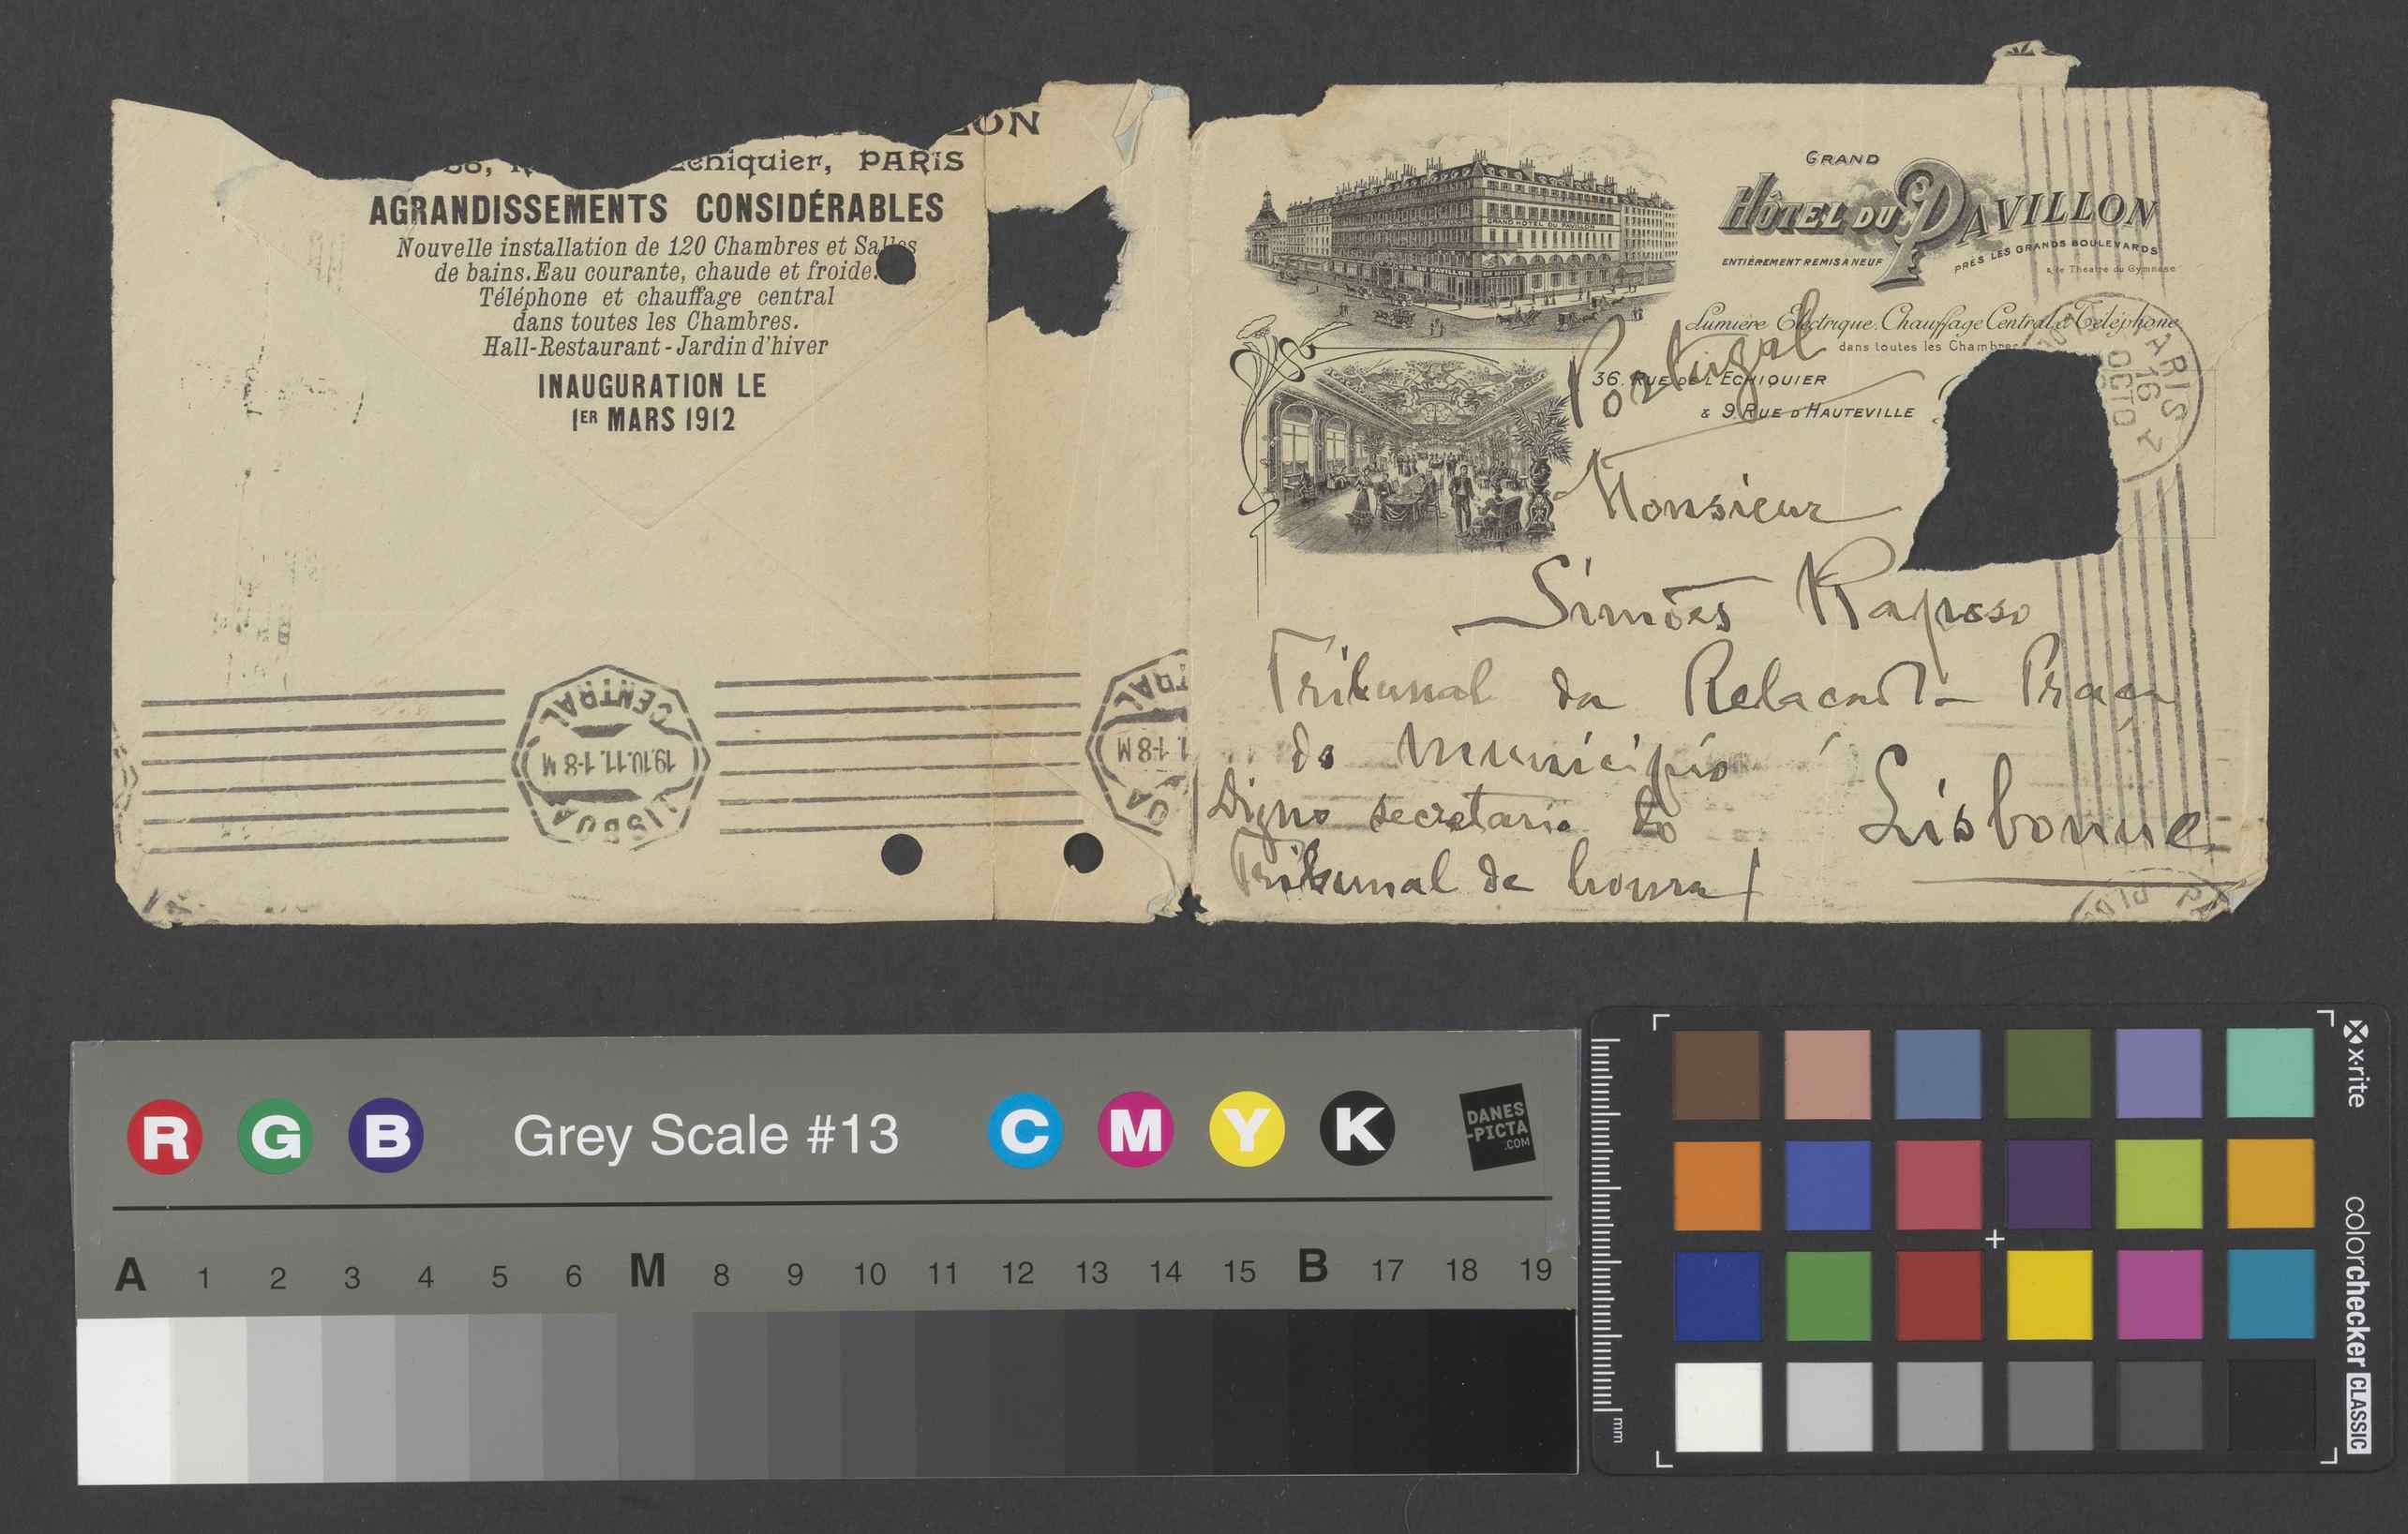 PARIS
AGRANDISSEMENTS CONSIDÉRABLES
Nouvelle installation de 120 Chambres et Salles
de bains. Eau courante, chaude et froide.
Téléphone et chauffage central
dans toutes les Chambres.
Hall-Restaurant - Jardin d'hiver
INAUGURATION LE
1ER MARS 1912
LISBOA
19.10.11.1-8 M
CENTRAL
1-8 M
GRAND
HÔTEL DU PAVILLON
ENTIÈREMENT REMIS A NEUF
PRÈS LES GRANDS BOULEVARDS
& le Théatre du Gymnase
GRAND HOTEL DU PAVILLON
Lumière Electrique. Chauffage Central & Téléphone
dans toutes les Chambres
36. RUE DE L'ECHIQUIER
& 9 RUE D'HAUTEVILLE
Portugal
PARIS
16
OCTO
Monsieur
Simões Raposo
Tribunal da Relacão - Praça
do Municipio
Lisbonne
Digno secretario do
Tribunal de honra
R G B Grey Scale #13 C M Y K
DANES
-PICTA
.COM
A 1 2 3 4 5 6 M 8 9 10 11 12 13 14 15 B 17 18 19
x-rite
colorchecker CLASSIC
mm